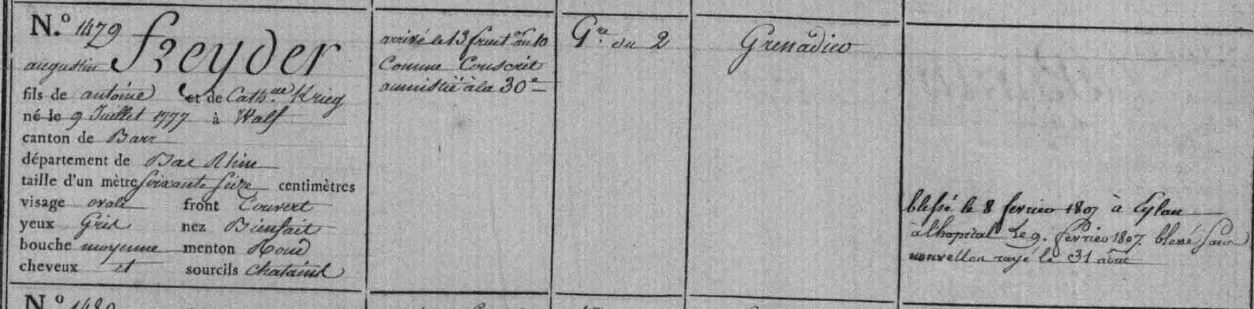 N.º 1479
augustin Freyder
fils de antoine et de Cath.ne Krieg
né le 9 Juillet 1777 à Walf
canton de Barr
département de Bas Rhin
taille d'un mètre soixante seize centimètres
visage ovale front Couvert
yeux Gris nez Bienfait
bouche moyenne menton Rond
cheveux et sourcils chatains
arrivé le 13 fruct.or an 10
Comme Conscrit
amnistié à la 30e
G.re du 2
Grenadier
blessé le 8 fevrier 1807 à Eylau
a lhopital Le 9. fevrier 1807 blessé Sans
nouvelles rayé le 31
N.º 1480